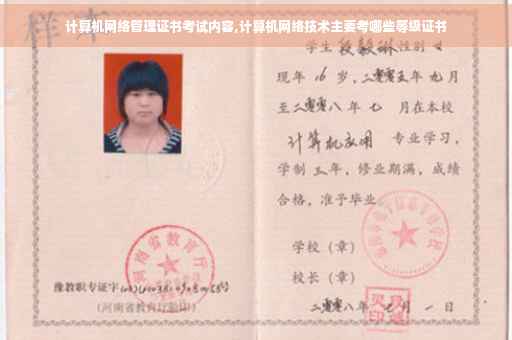 计算机网络管理证书考试内容,计算机网络技术主要考哪些等级证书
样本
学生 段毅琳 性别 女
现年 16 岁，二零零五年 九月
至二零零八年 七 月在本校
计算机应用 专业学习，
学制 三 年，修业期满，成绩
合格，准予毕业。
河南省教育厅
学校（章）
校长（章）
豫教职专证字
（河南省教育厅验印）
二零零八年 七 月 一 日